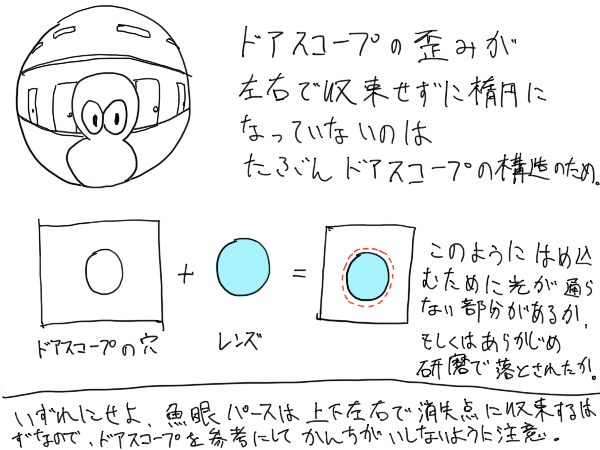 ドアスコープの歪みが
左右で収束せずに楕円に
なっていないのは
たぶんドアスコープの構造のため。
+
=
ドアスコープの穴
レンズ
このようにはめ込
むために光が通ら
ない部分があるか、
もしくはあらかじめ
研磨で落とされたか。
いずれにせよ、魚眼パースは上下左右で消失点に収束するは
ずなので、ドアスコープを参考にしてかんちがいしないように注意。